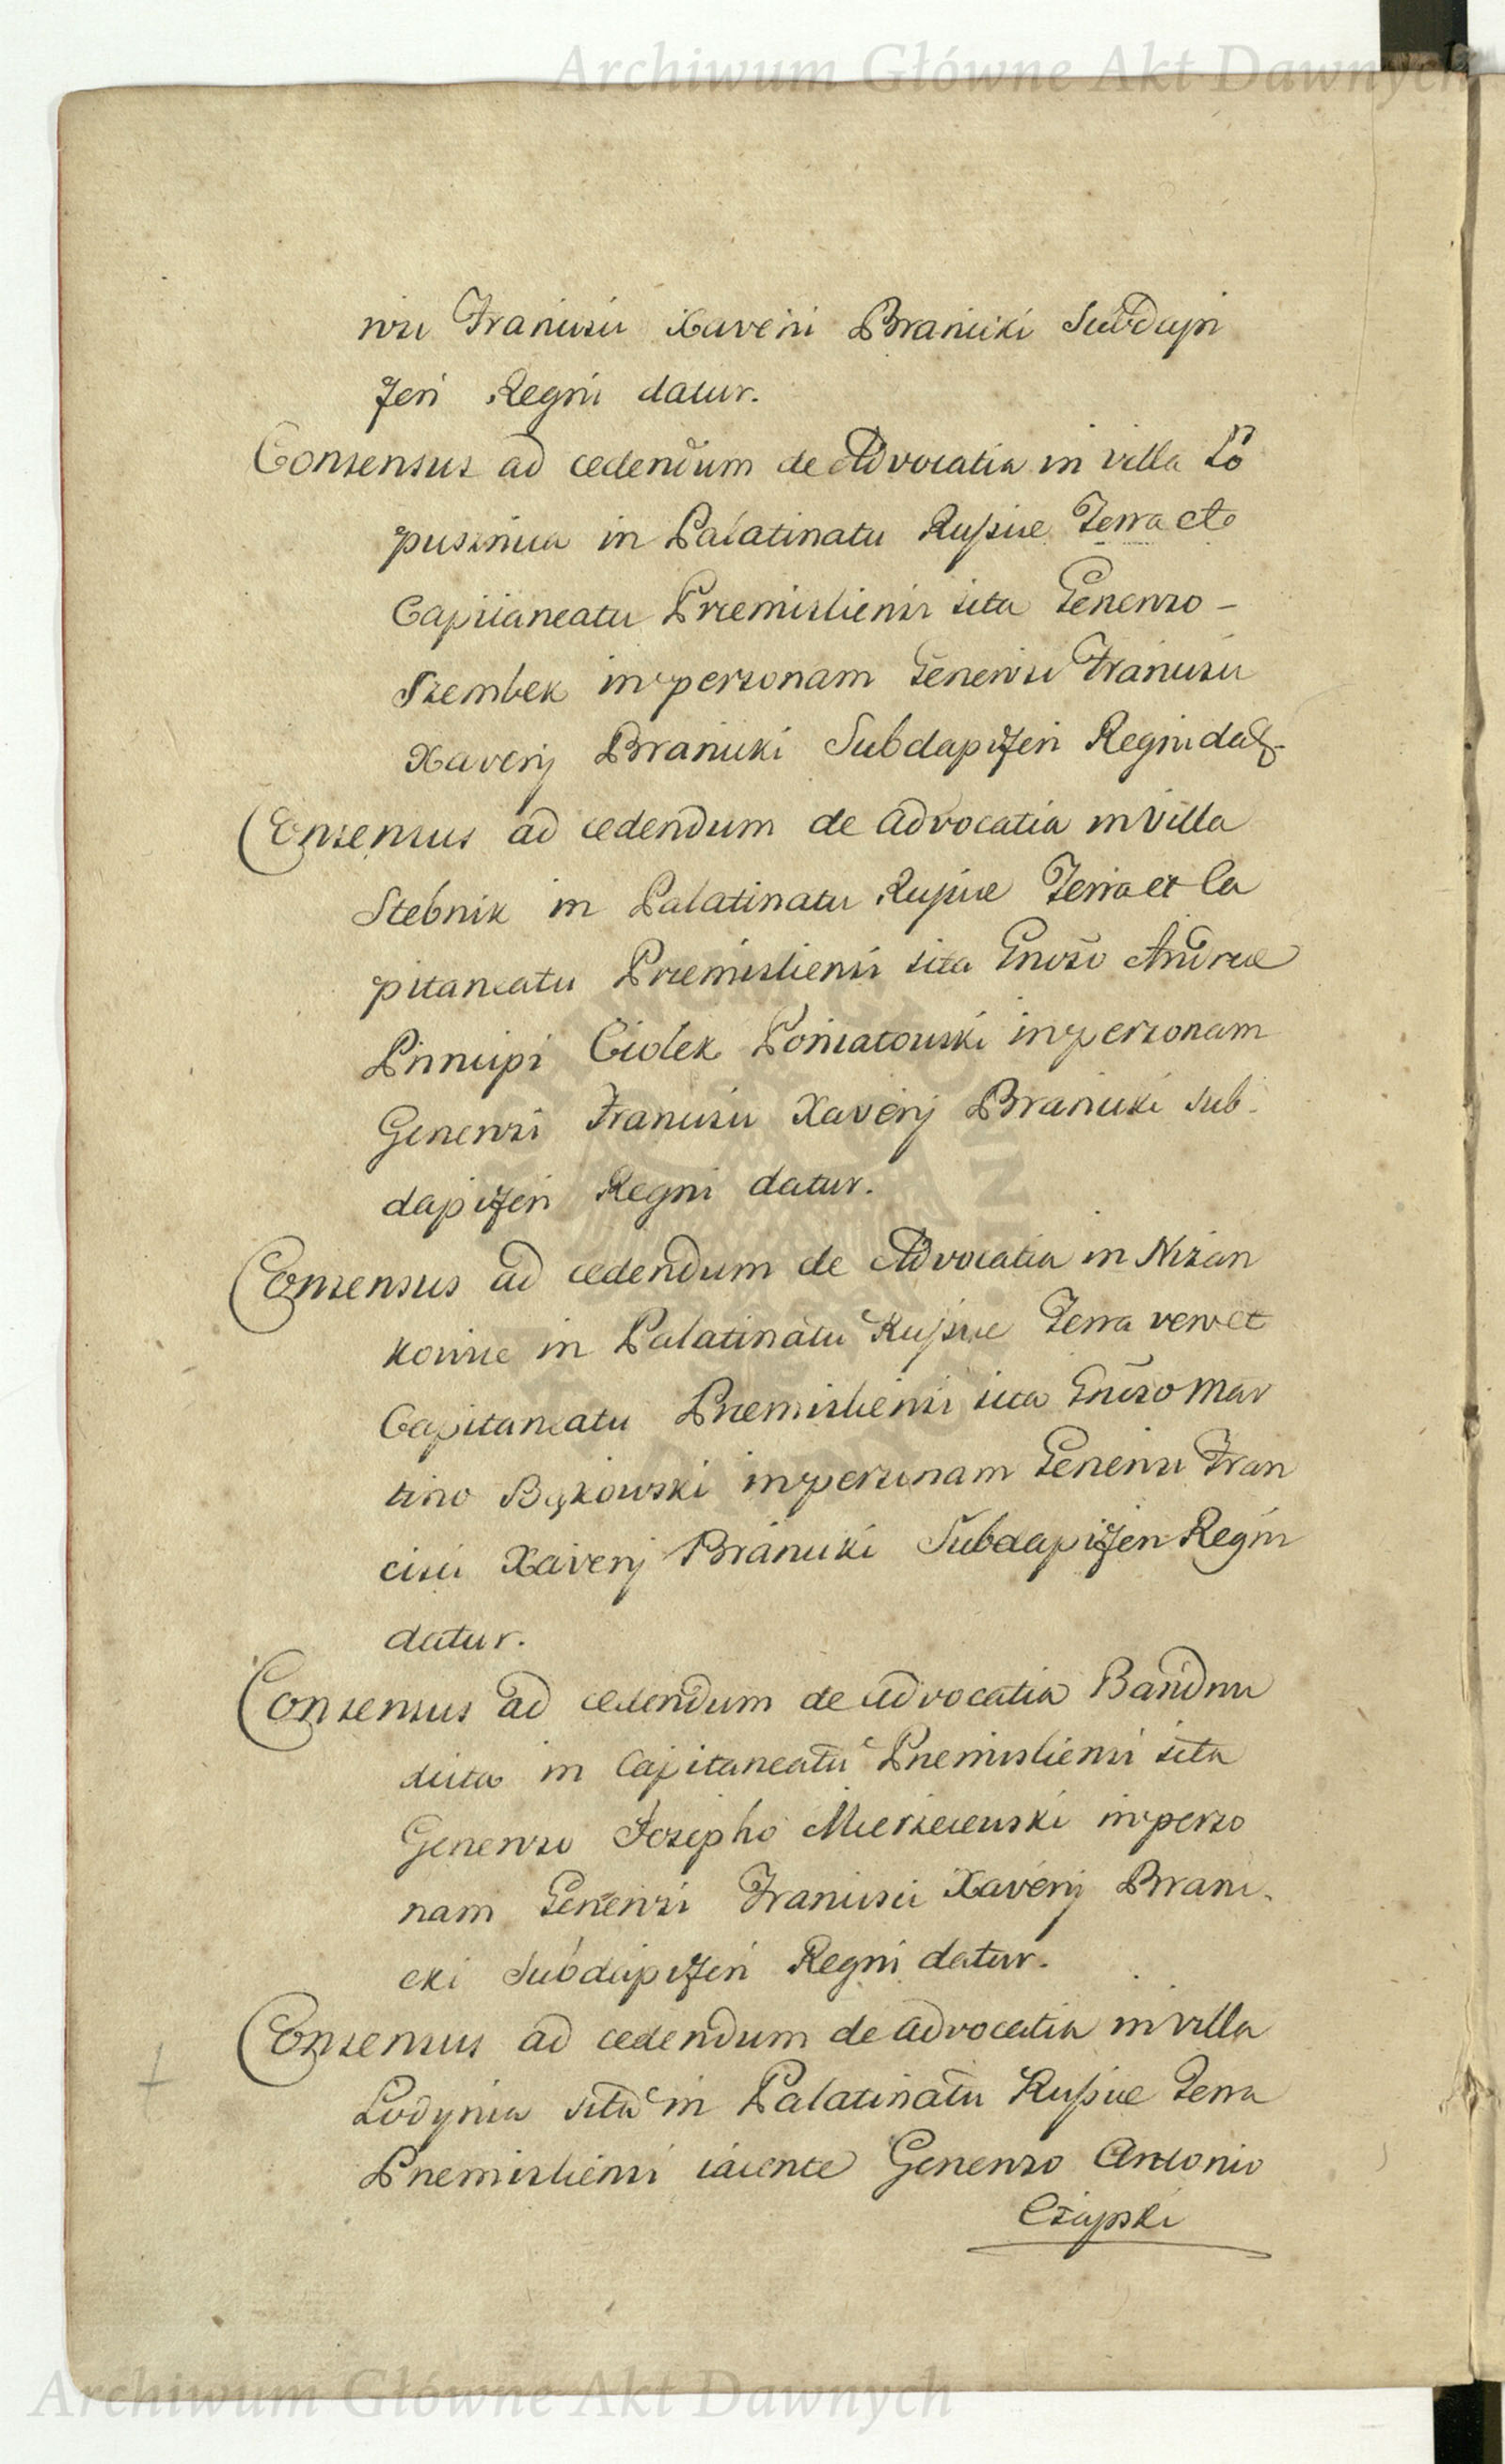 Archiwum Główne Akt Dawnych
rosi Francisci Xaverii Branicki Subdapi
feri Regni datur.
Consensus ad cedendum de Advocatia in villa Lo
pusznica in Palatinatu Russiae Terra et
Capitaneatu Praemisliensi sita Generoso -
Szembek in personam Generosi Francisci
Xaverij Branicki Subdapiferi Regni dat.
Consensus ad cedendum de Advocatia in Villa
Stebnik in Palatinatu Russiae Terra et Ca
pitaneatu Praemisliensi sita Gnoso Andreae
Principi Ciolek Poniatowski in personam
Generosi Francisci Xaverij Branicki Sub-
dapiferi Regni datur.
Consensus ad cedendum de Advocatia in Nizan
kowice in Palatinatu Russiae Terra vero et
Capitaneatu Praemisliensi sita Gnoso Mar
tino Bąkowski in personam Generosi Fran
cisci Xaverij Branicki Subdapiferi Regni
datur.
Consensus ad cedendum de Advocatia
dicta in Capitaneatu Praemisliensi sita
Generoso Josepho in perso
nam Generosi Francisci Xaverij Brani-
cki Subdapiferi Regni datur.
Consensus ad cedendum de Advocatia in villa
Lodynia sita in Palatinatu Russiae Terra
Praemisliensi iacente Generoso Antonio
Czapski
Archiwum Główne Akt Dawnych